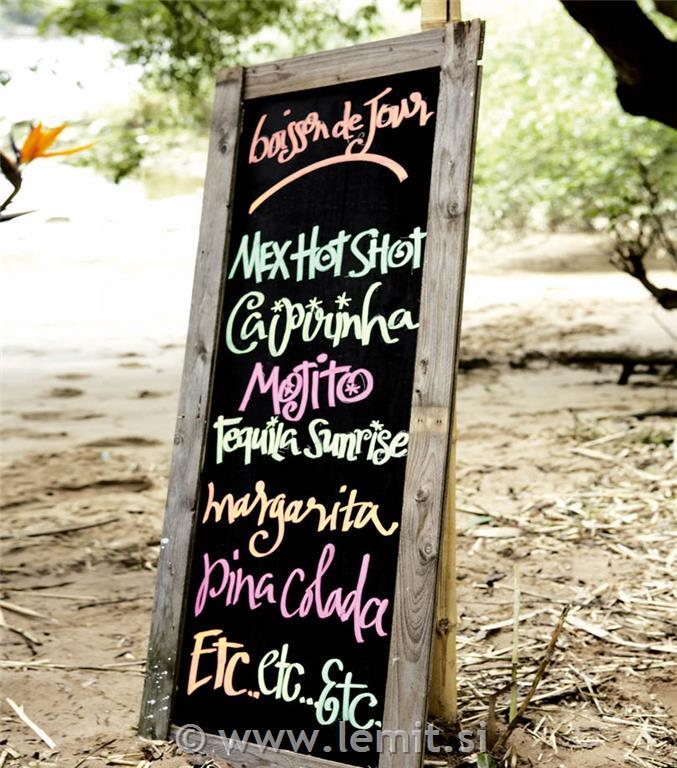 boisson de Jour
Mex Hot Shot
Caipirinha
Mojito
Tequila Sunrise
margarita
pina colada
Etc..etc..Etc.
© www.lemit.si